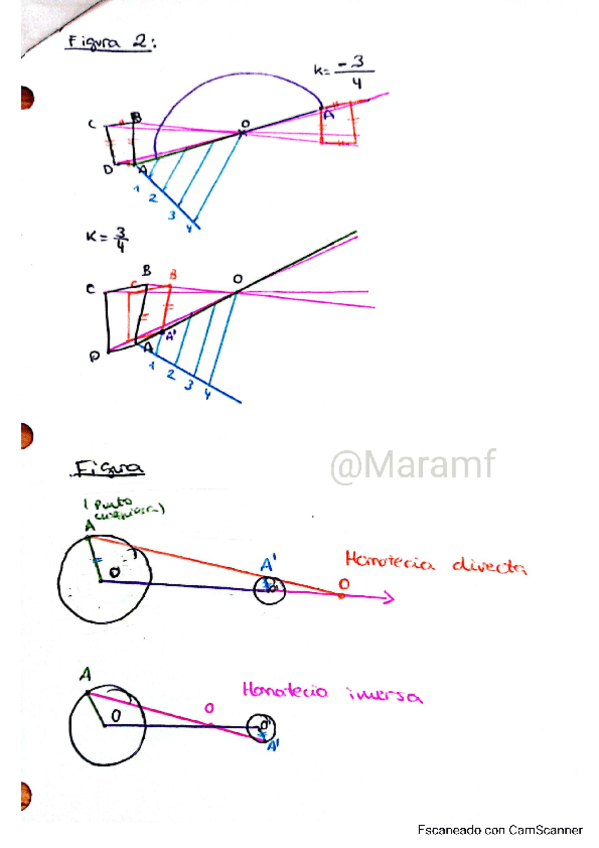 Figura 2:
K= -3/4
C B O A'
D A
1
2
3
4
K= 3/4
B B
C C O
D A A'
1 2 3 4
@Maramf
Figura
(Punto
A
O A' O' O
Homotecia directa
A
O O O' A'
Homotecia inversa
Escaneado con CamScanner